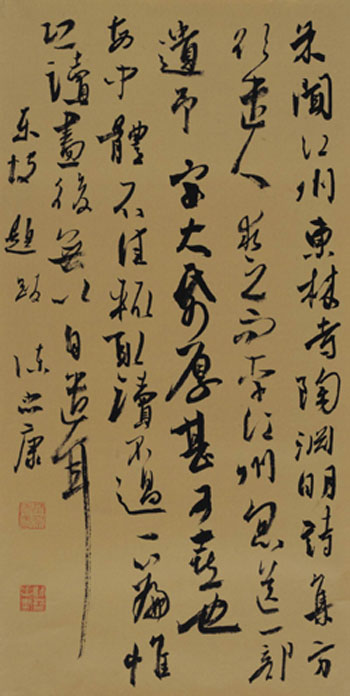 余聞江州東林寺陶淵明詩集方
欲遣人求之而李江州忽送一部
遺予字大紙厚甚可喜也
每中體不佳輒取讀不過一篇惟
恐讀盡後無以自遣耳
東坡題跋 陳忠康